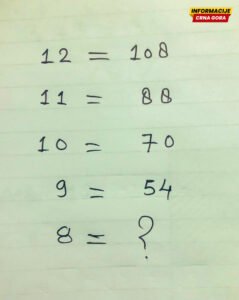 INFORMACIJE
CRNA GORA
12 = 108
11 = 88
10 = 70
9 = 54
8 = ?